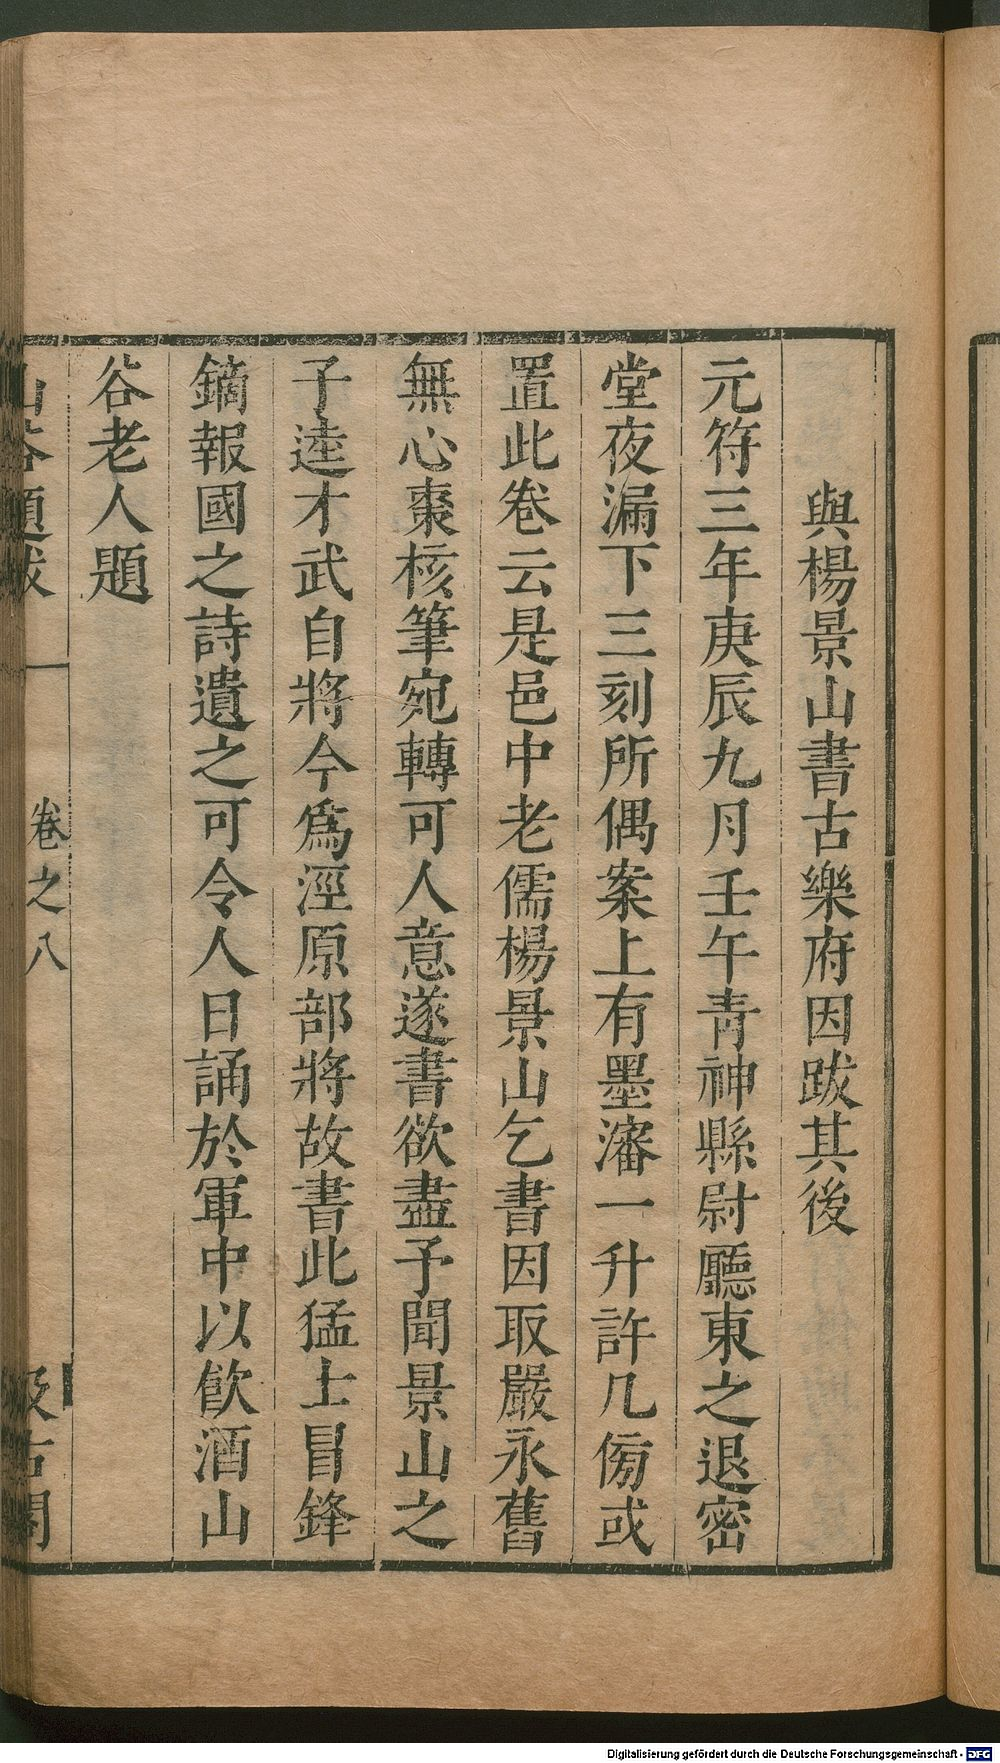 與楊景山書古樂府因跋其後
元符三年庚辰九月壬午青神縣尉廳東之退密
堂夜漏下三刻所偶案上有墨瀋一升許几傍或
置此卷云是邑中老儒楊景山乞書因取嚴永舊
無心棗核筆宛轉可人意遂書欲盡予聞景山之
子逵才武自將今爲涇原部將故書此猛士冒鋒
鏑報國之詩遺之可令人日誦於軍中以飮酒山
谷老人題
山谷題跋 卷之八 汲古閣
Digitalisierung gefördert durch die Deutsche Forschungsgemeinschaft - DFG